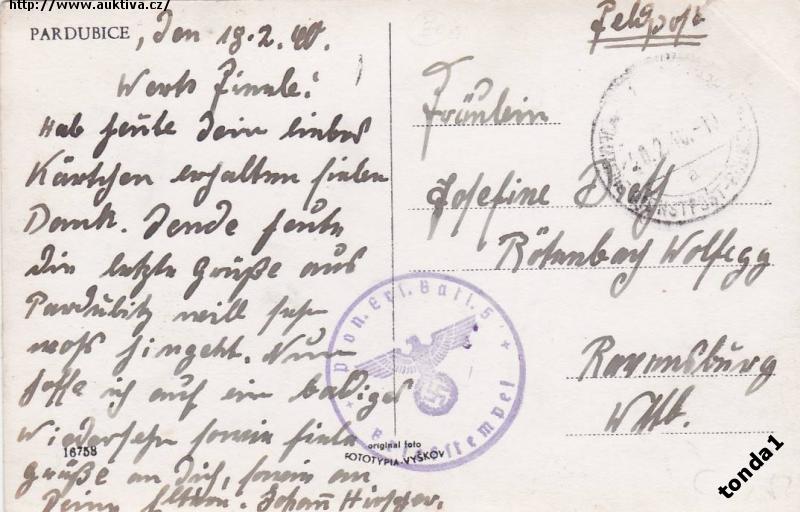 http://www.auktiva.cz/
PARDUBICE, den 18.2.40.
Werte Finele!
Hab heute dein liebes
Kärtchen erhalten vielen
Dank. Sende heute
die letzte Grüße aus
Pardubitz will sehn
wohs hingeht. Nun
hoffe ich auf ein baldiges
Wiedersehn sowie viele
Grüße an Dich, sowie an
Deine Eltern. Johann
16758
original foto
FOTOTYPIA-VYŠKOV
Feldpost
Fräulein
Josefine
Rötenbach Wolfegg
Ravensburg
Wttb.
Pion. Ers. Batl. 5
Briefstempel
DIENSTPOST
a
tonda1